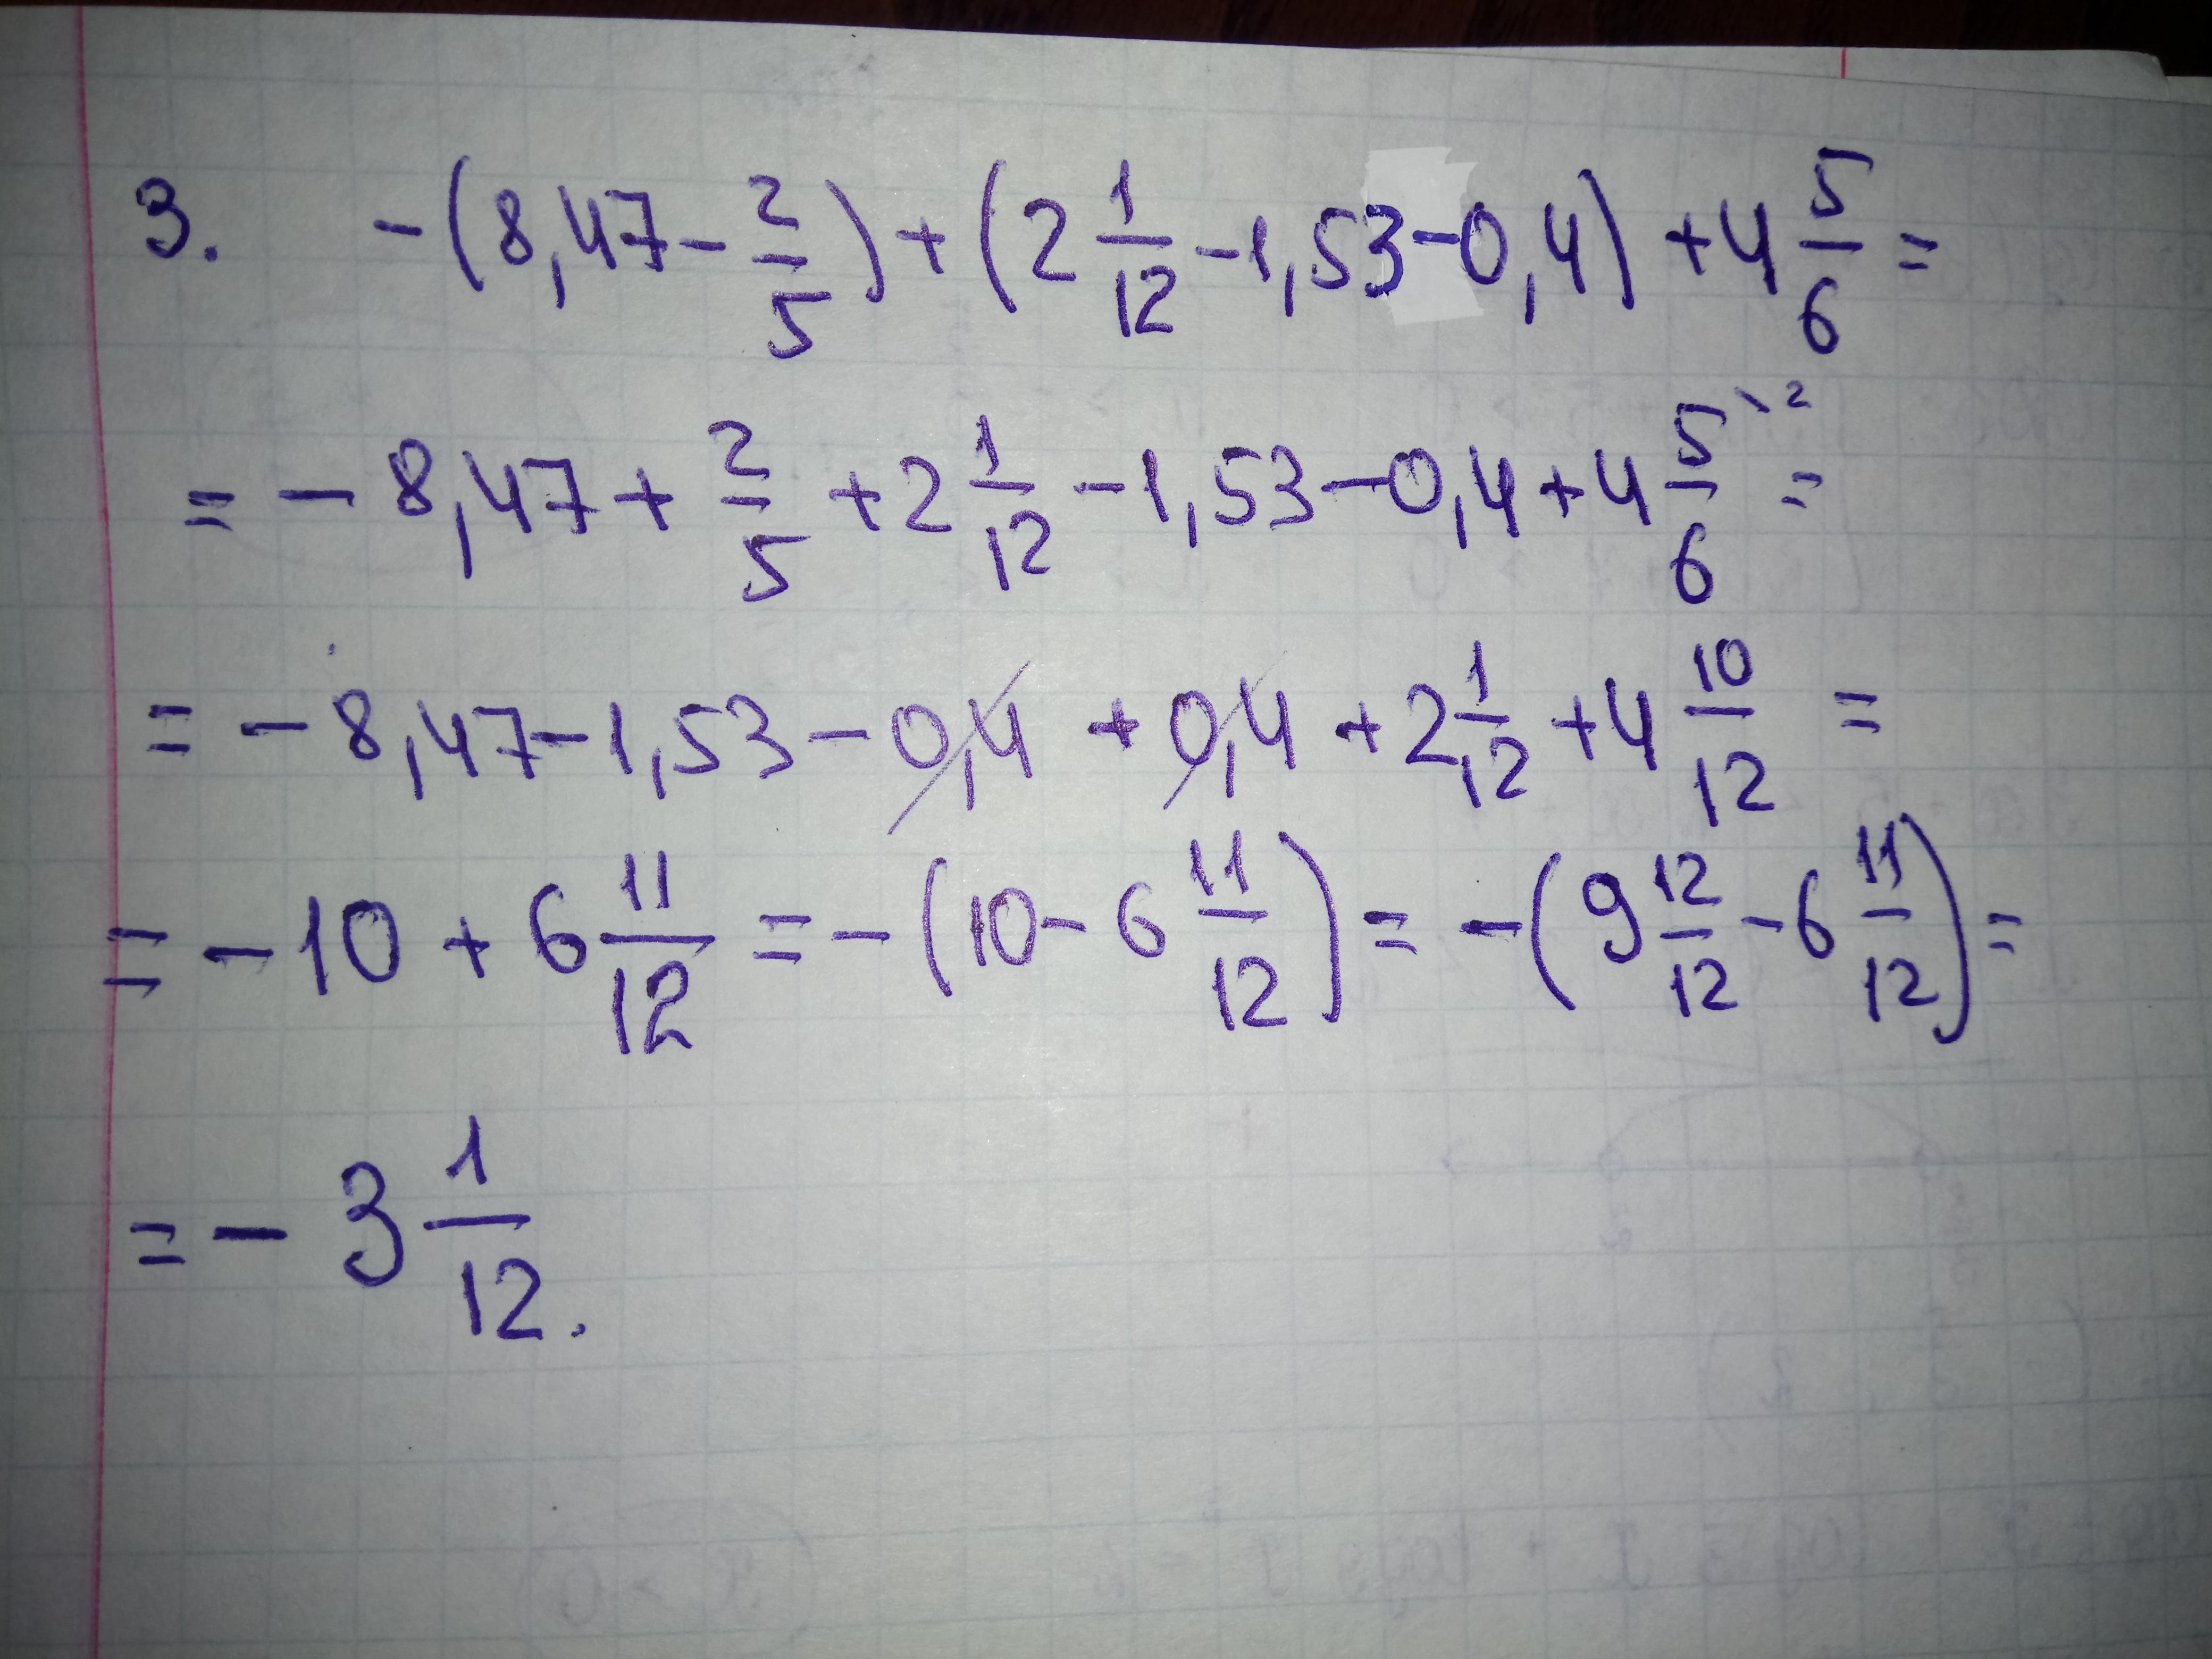 3. -(8,47-2/5)+(2 1/12-1,53-0,4)+4 5/6=
=-8,47+2/5+2 1/12-1,53-0,4+4 5/6 \2=
=-8,47-1,53-0,4+0,4+2 1/12+4 10/12=
=-10+6 11/12=-(10-6 11/12)=-(9 12/12-6 11/12)=
=-3 1/12.